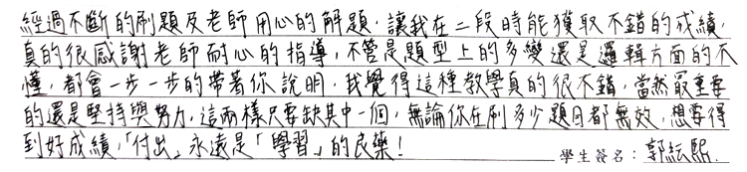 經過不斷的刷題及老師用心的解題,讓我在二段時能獲取不錯的成績,
真的很感謝老師耐心的指導,不管是題型上的多變還是邏輯方面的不
懂,都會一步一步的帶著你說明,我覺得這種教學真的很不錯,當然最重要
的還是堅持與努力,這兩樣只要缺其中一個,無論你在刷多少題目都無效,想要得
到好成績,「付出」永遠是「學習」的良藥!
學生簽名:郭紜熙.